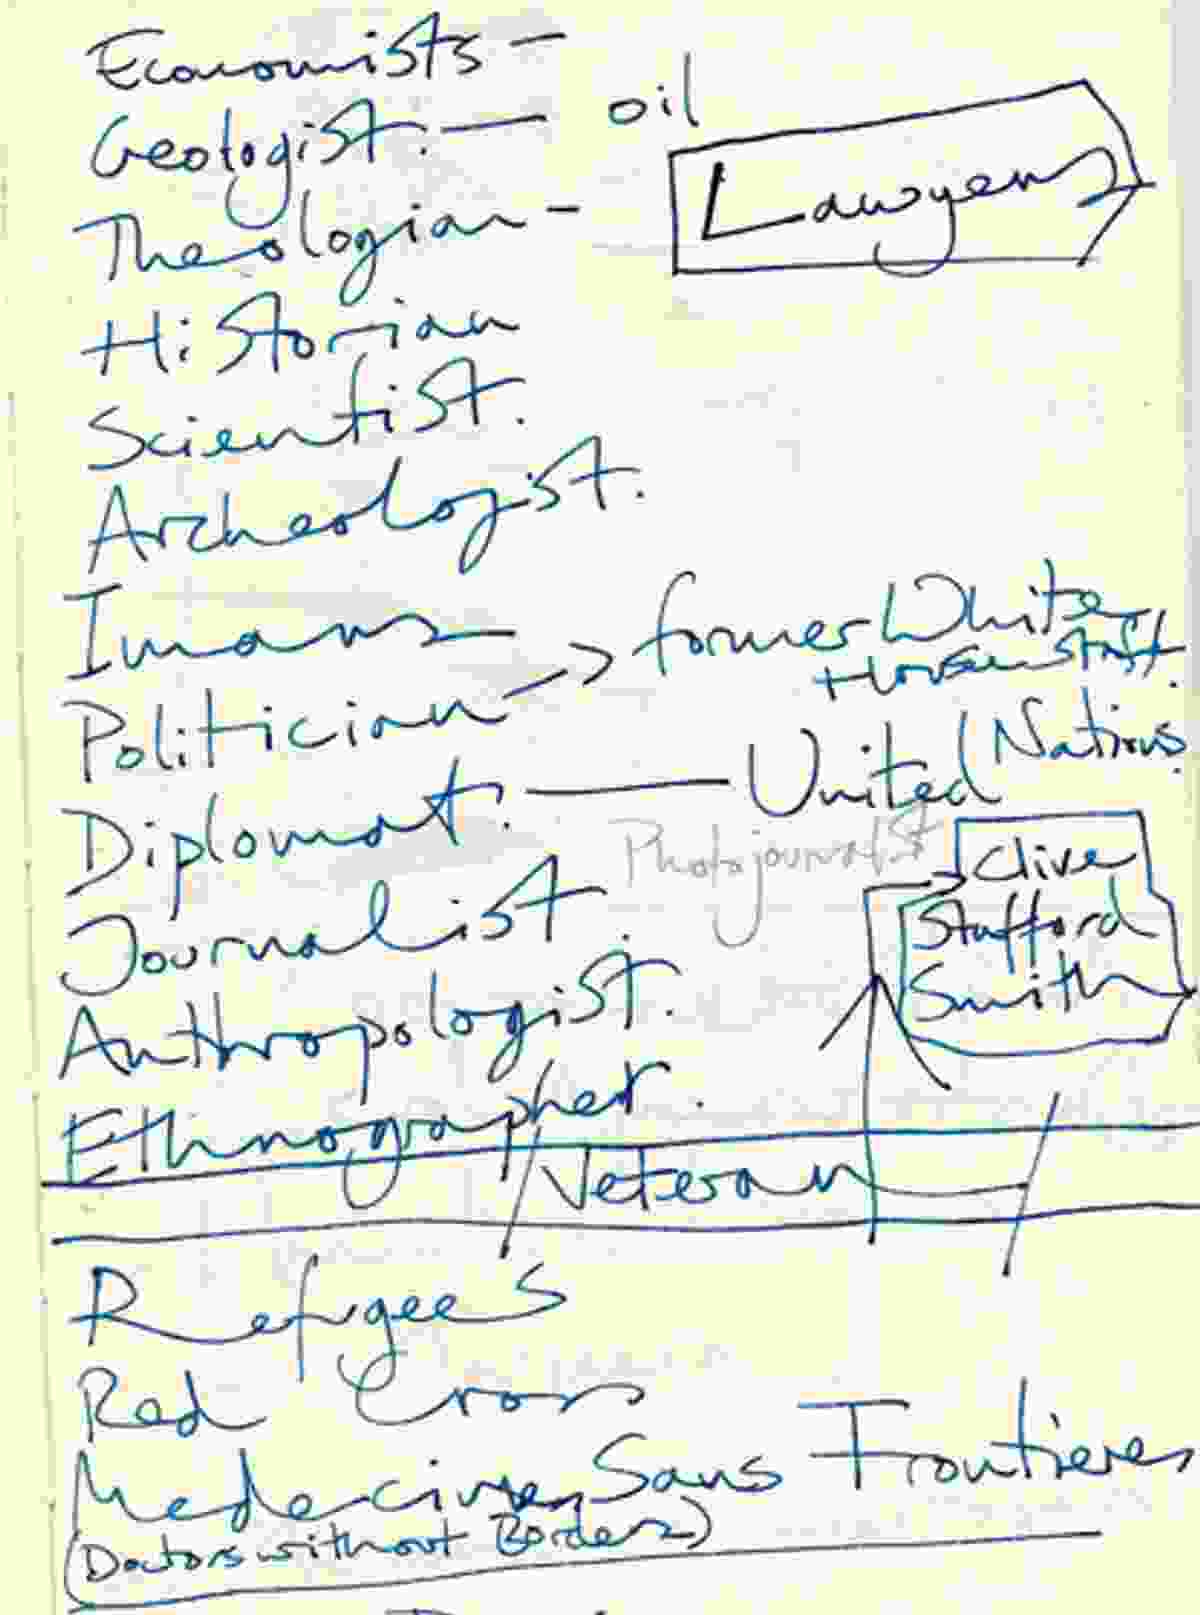 Economists -
Geologist. — oil
Lawyers
Theologian -
Historian
Scientist.
Archeologist.
Imams
Politician -> former White
House staff.
Diplomat. — United Nations.
Photojournalist
Clive
Stafford
Smith
Journalist.
Anthropologist.
Ethnographer.
Veteran
Refugees
Red Cross
Medecins Sans Frontieres
(Doctors without Borders)